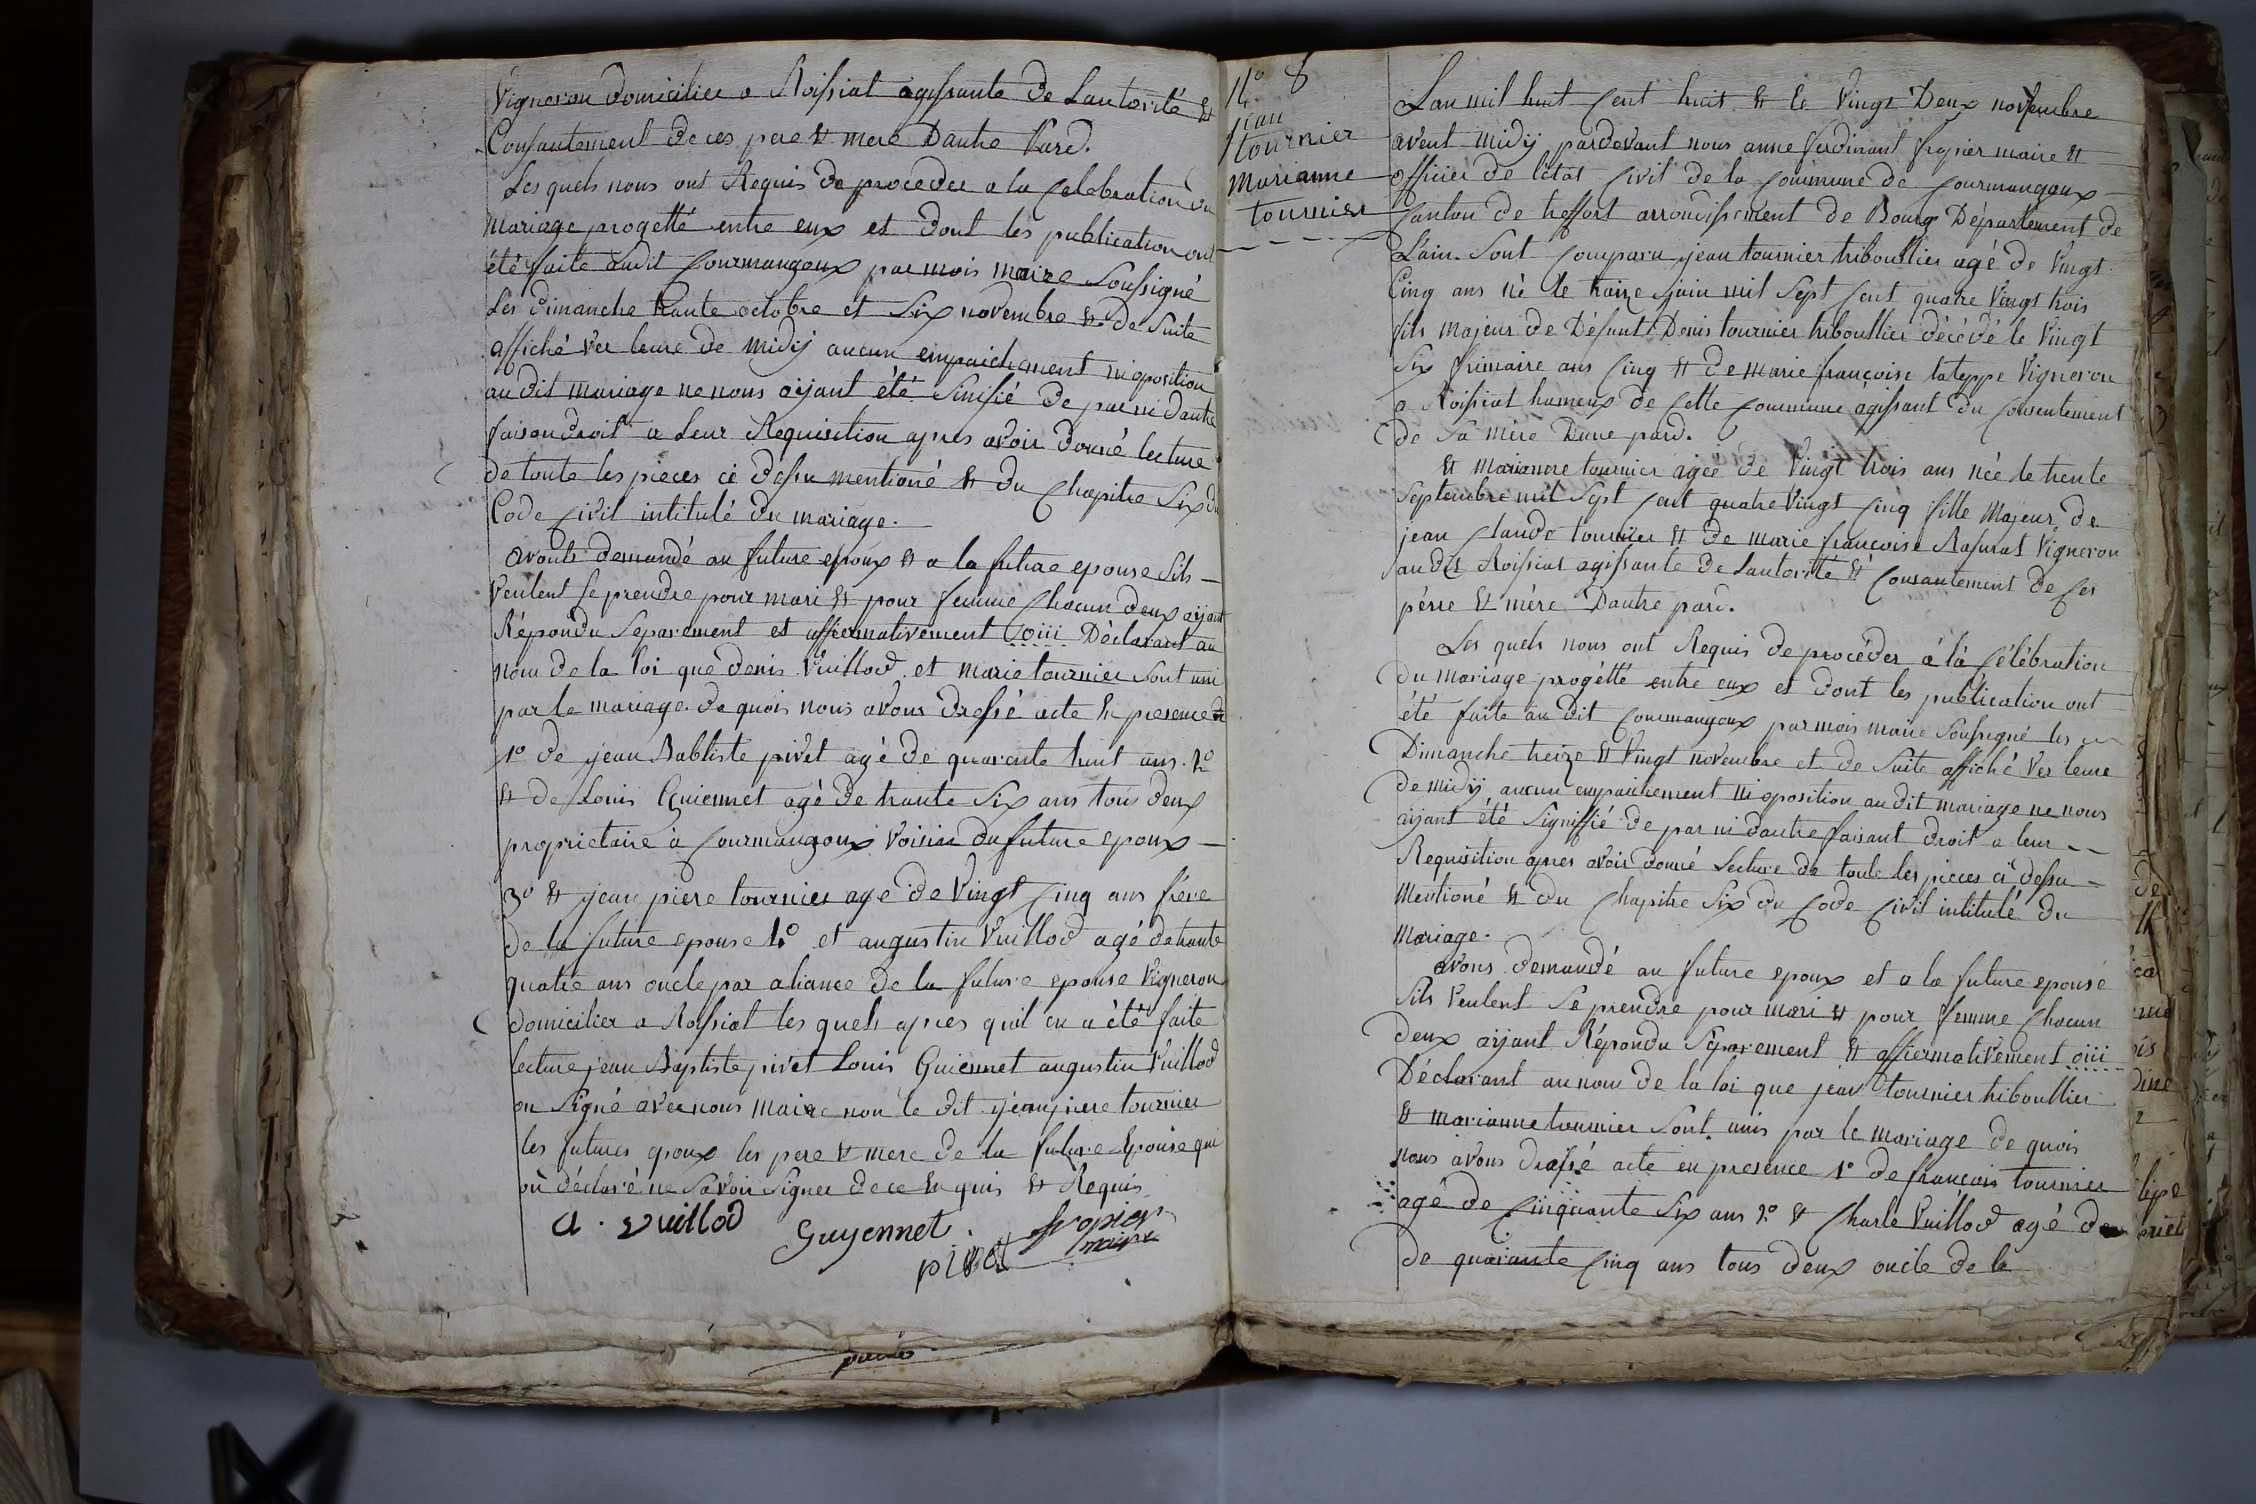 Vigneron domicilié a Roissiat agissante de Lautorité &
Consantement de ces pere & mere Dautre Pard.
Les quels nous ont Requis de proceder a la Celebration du
mariage progetté entre eux et dont les publication ont
été faite audit Courmangoux par mois maire Soussigné
Les Dimanche trante octobre et Six novembre & de Suite
affiché ver leure de midij aucun empaichement ni oposition
au dit mariage ne nous aijant été Sinifié de par ni Dautre
faisan droit a Leur Requisition apres avoir donné lecture
de toute les pieces ci dessu mentioné & du Chapitre Six du
Code Civil intitulé du mariage.
avons demandé au future epoux & a la future epouse Sils
Veulent Se prendre pour mari & pour femme Chacun deux aijant
Répondu Separement et affiermativement oiii Déclarant au
nom de la loi que denis Vuillod et marie tournier Sont uni
par le mariage. de quois nous avons dressé acte En presence
1º de jean Babtiste pivet agé de quarente huit ans. 2º
& de Louis Guiennet agé de trante Six ans tous deux
proprietaire à Courmangoux Voisin du future epoux
3º & jean piere tournier agé de Vingt Cinq ans frere
de la future epouse 4º et augustin Vuillod agé de trante
quatre ans oncle par aliance de la future epouse Vigneron
domicilier a Roissiat les quels apres quil en a été faite
lecture jean Baptiste pivet Louis Guiennet augustin Vuillod
on Signé avec nous maire non le dit jean piere tournier
les futures epoux les pere & mere de la future Epouse qui
on déclaré ne Savoir Signer de ce Enquis & Requis
a. vuillod
Guyennet.
pivet
frogier
maire
Nº 8
jean
tournier
marianne
tournier
Lan mil huit Cent huit & le Vingt Deux novembre
avent midij pardevant nous anne ferdinant frogier maire &
officier de létat Civil de la Commune de Courmangoux
Canton de treffort arrondissement de Bourg Département de
Lain. Sont Comparu jean tournier triboullier agé de Vingt
Cinq ans né le traize juin mil Sept Cent quatre Vingt trois
fils majeur de Défunt Denis tournier triboullier décédé le Vingt
Six frimaire ans Cinq & de marie françoise lateppe Vigneron
a Roissiat hameux de Cette Commune agissant du Consentement
de Sa mère Dune pard.
& marianne tournier agée de Vingt trois ans née le trente
Septembre mil Sept Cent quatre Vingt Cinq fille Majeur de
jean Claude tournier & de marie françoise Rasurat Vigneron
audit Roissiat agissante de Lautorité & Consantement de Ces
pérre & mére Dautre pard.
Les quels nous ont Requis de procéder á là Célébration
du mariage progétté entre eux et dont les publication ont
été faite au dit Courmangoux par mois maire Soussigné les
Dimanche treize & Vingt novembre et de Suite affiché Ver leure
de midij aucun empaichement ni oposition au dit mariage ne nous
aijant été Signiffié de par ni dautre faisant droit a leur
Requisition apres avoir donné Lecture de toute les pieces ci dessu
Mentioné & du Chapitre Six du Code Civil intitulé du
Mariage.
avons demandé au future epoux et a la future epouse
Sils Veulent Se prendre pour mari & pour femme Chacun
deux aijant Répondu Séparement & affiermativement oiii
Déclarant au nom de la loi que jean tournier triboullier
& marianne tournier Sont unis par le mariage de quois
nous avons dressé acte en presence 1º de françois tournier
agé de Cinquante Six ans 2º & Charle Vuillod agé
de quarante Cinq ans tous deux oncle de la